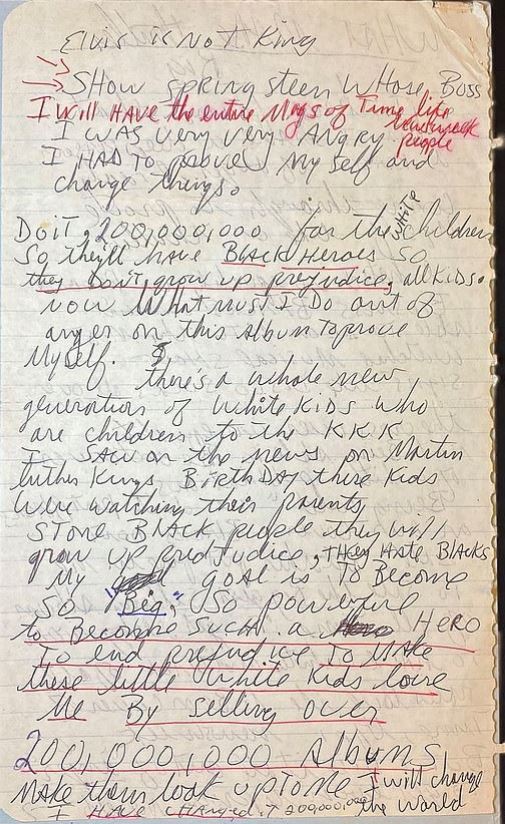 Elvis is Not King
Show springsteen Whose Boss
I Will HAVE the entire Mags of Time like
I was very very Angry. people
I HAD TO prove My self and
change things.
Do it, 200,000,000 for the white children
So they'll have BlAck Heroes So
they Don't grow up prejudice, all Kids.
now What must I Do out of
anger on this Album To prove
Myself.
there's a whole new
generation of white Kids who
are children to the K.K.K
I SAW on the news on Martin
luther Kings BirthDAY these Kids
were watching their parents
STONE BlAck people they will
grow up predjudice, they HAte BlAcks
My goAl is To Become
So "Big," So powerful
to Become SUCH a HERO
To end prejudice To MAke
these little white Kids love
Me By selling over
200,000,000 AlbuMs
MAke them look up To Me I will change
I HAVE changed it 200,000,000 the world